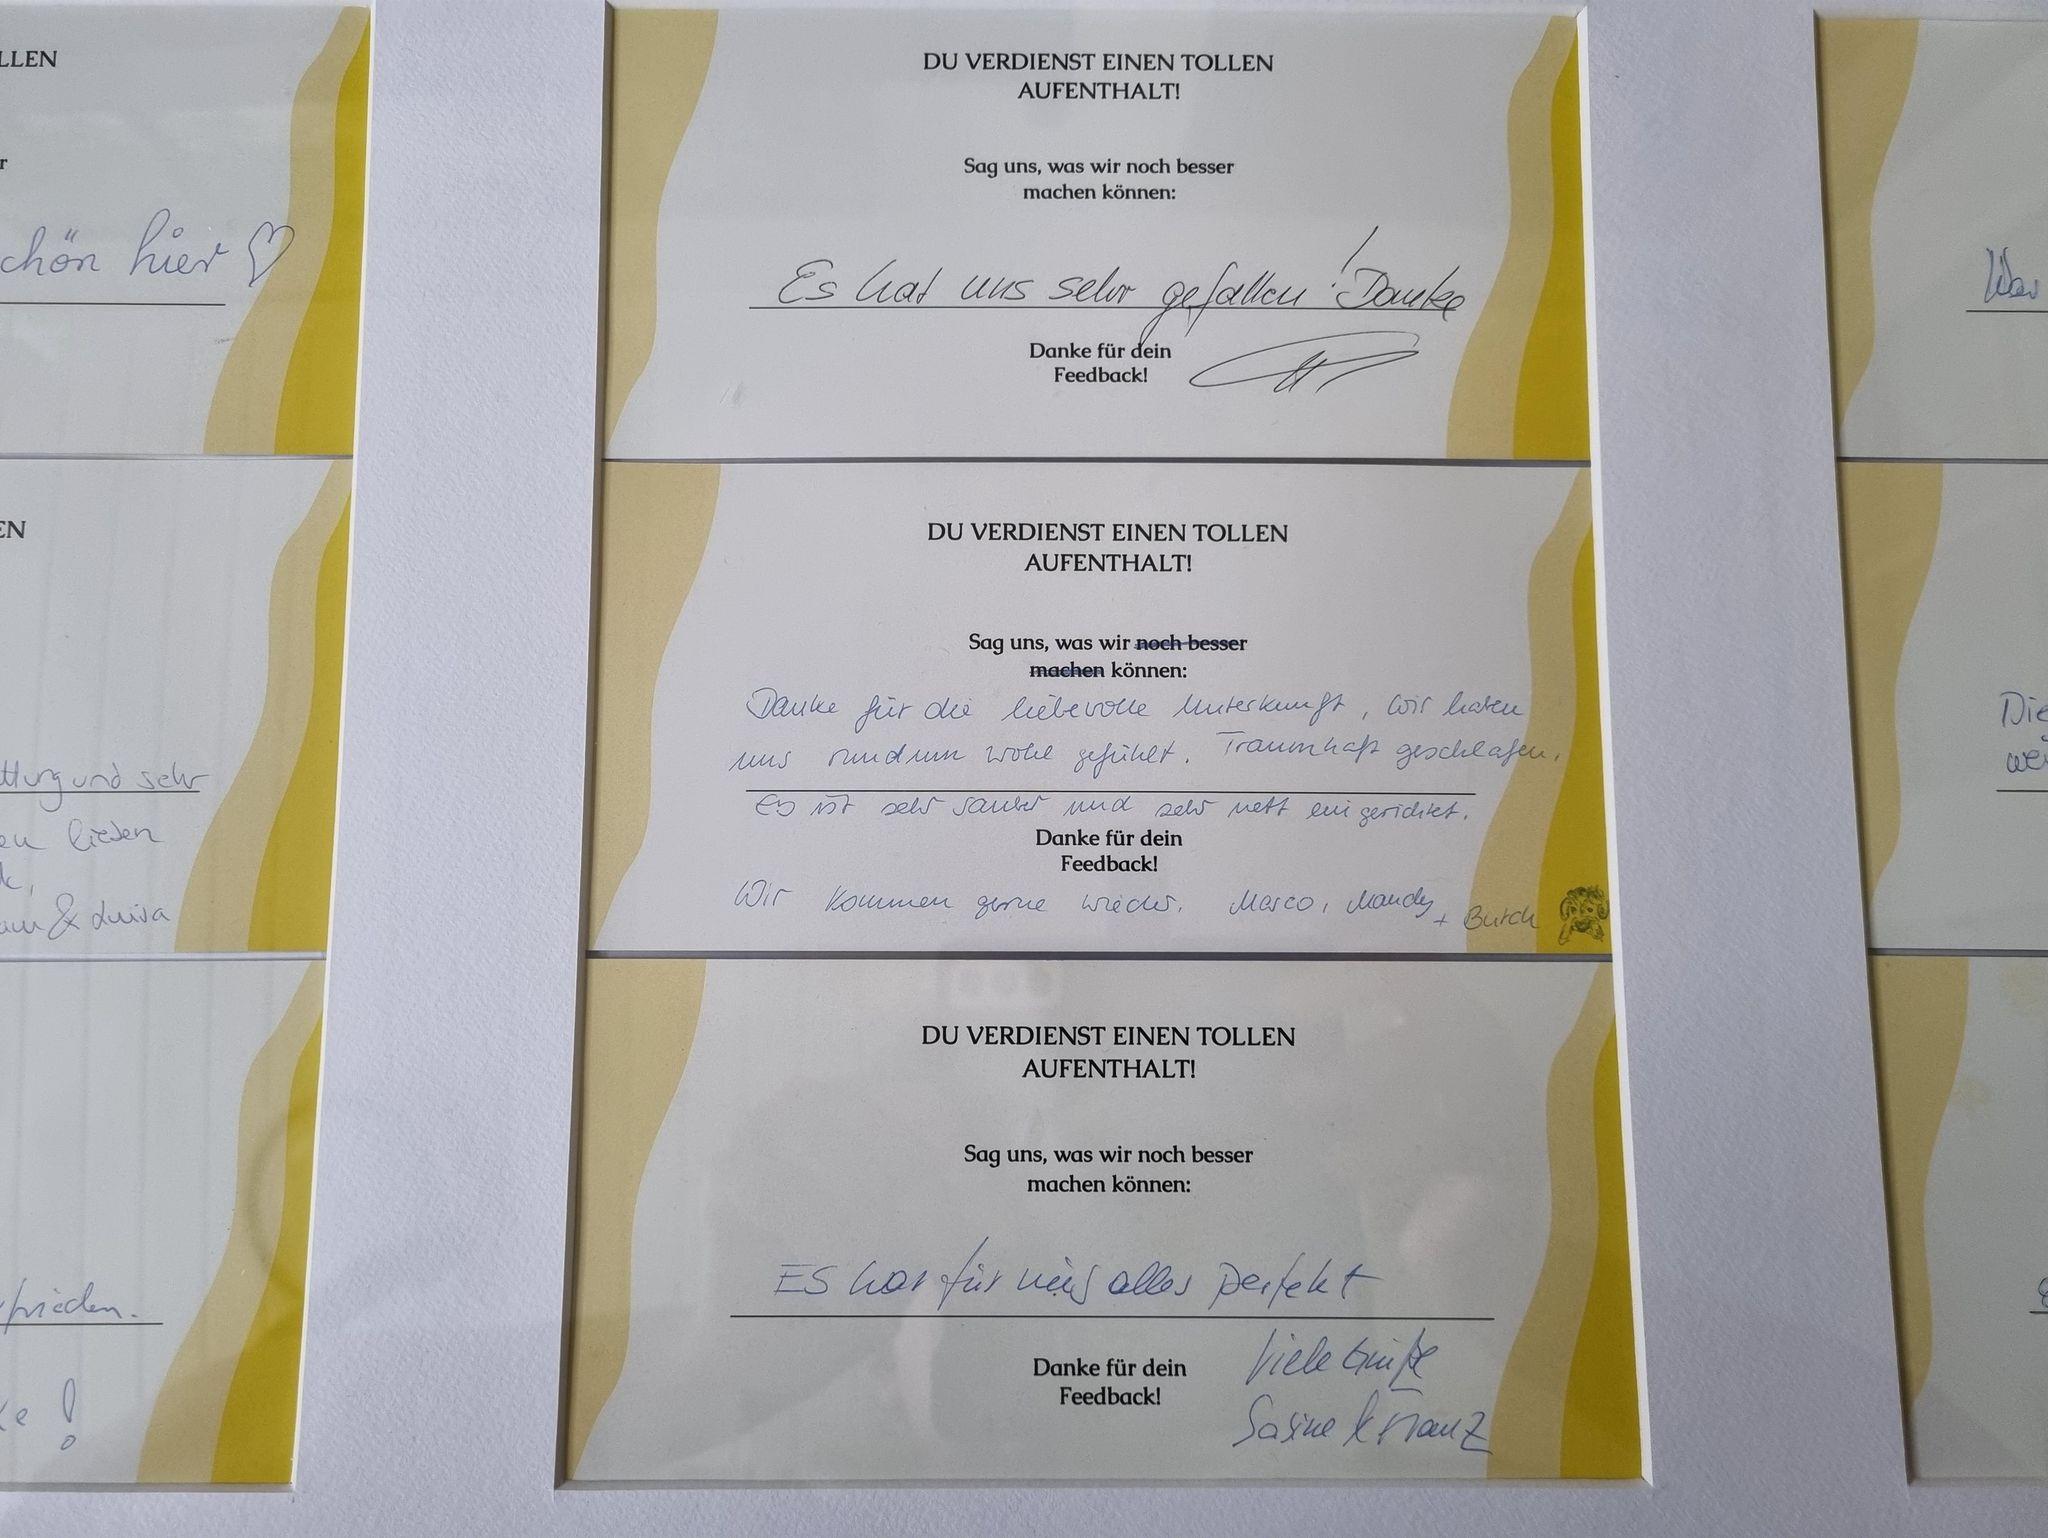 LLEN
r
chön hier ♡
EN
ttung und sehr
en lieben
k,
am & Luisa
frieden.
ke !
DU VERDIENST EINEN TOLLEN
AUFENTHALT!
Sag uns, was wir noch besser
machen können:
Es hat uns sehr gefallen! Danke
Danke für dein
Feedback!
DU VERDIENST EINEN TOLLEN
AUFENTHALT!
Sag uns, was wir noch besser
machen können:
Danke für die liebevolle Unterkunft, wir haben
uns rundum wohl gefühlt. Traumhaft geschlafen.
Es ist sehr sauber und sehr nett eingerichtet.
Danke für dein
Feedback!
Wir kommen gerne wieder. Marco, Mandy
+ Butch
DU VERDIENST EINEN TOLLEN
AUFENTHALT!
Sag uns, was wir noch besser
machen können:
ES war für uns alles perfekt
Danke für dein
Feedback!
Viele Grüße
Sabine Kranz
War
Die